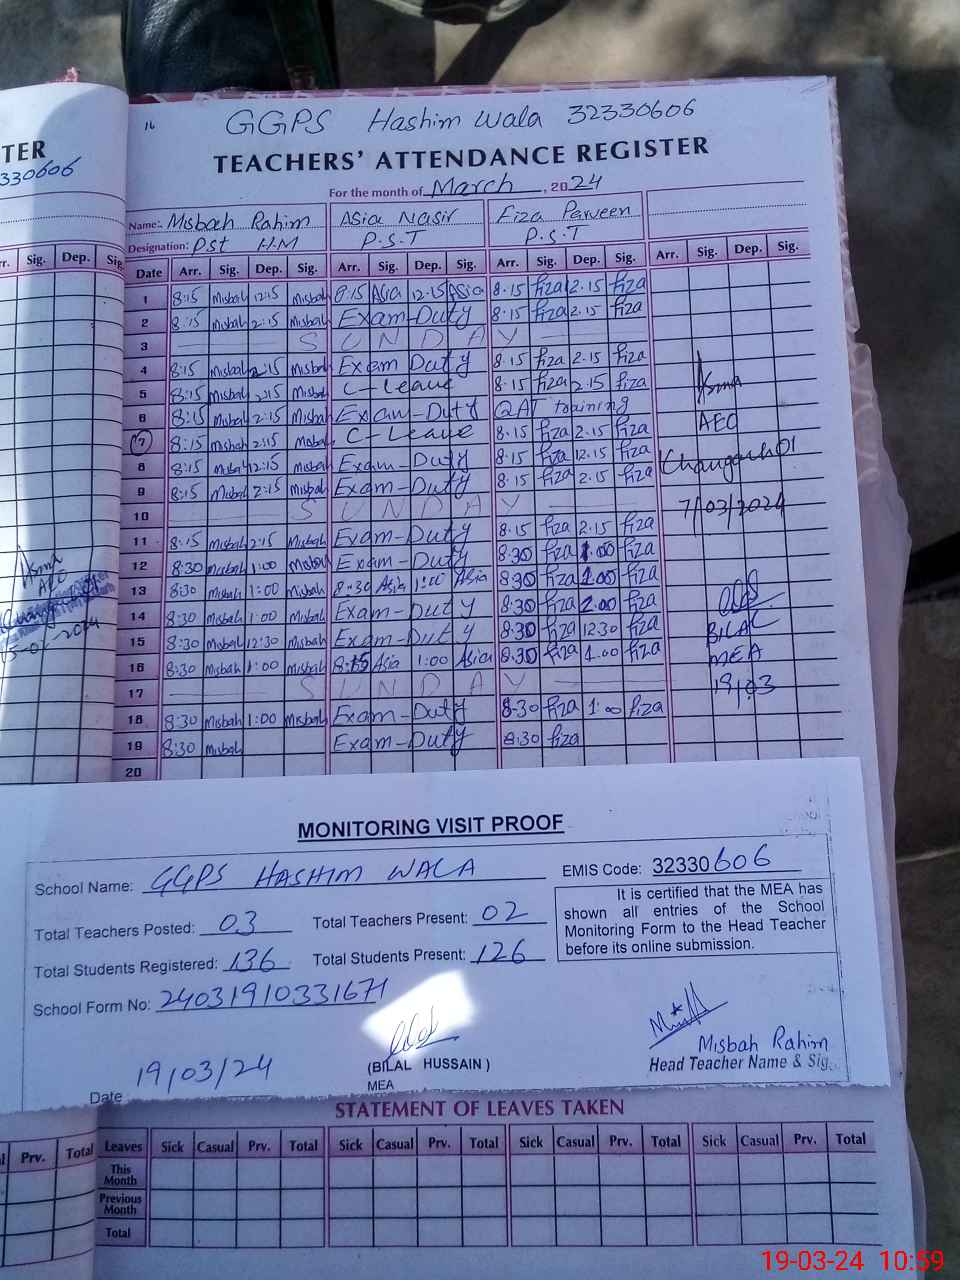 16
GGPS Hashim Wala 32330606
TER
330606
TEACHERS' ATTENDANCE REGISTER
For the month of March, 2024
Name: Misbah Rahim Asia Nasir Fiza Parveen
Designation: Pst H.M P.S.T P.S.T
r. Sig. Dep. Sig
Date Arr. Sig. Dep. Sig. Arr. Sig. Dep. Sig. Arr. Sig. Dep. Sig. Arr. Sig. Dep. Sig.
1 8:15 Misbah 12:15 Misbah 8:15 Asia 12:15 Asia 8.15 fiza 2.15 fiza
2 8:15 Misbah 2:15 Misbah Exam-Duty 8.15 fiza 2.15 fiza
3 SUNDAY
4 8:15 Misbah 2:15 Misbah Exam Duty 8.15 fiza 2.15 fiza
5 8:15 Misbah 2:15 Misbah C-Leave 8.15 fiza 2.15 fiza
6 8:15 Misbah 2:15 Misbah Exam-Duty QAT training
7 8:15 Misbah 2:15 Misbah C-Leave 8.15 fiza 2.15 fiza
8 8:15 Misbah 12:15 Misbah Exam-Duty 8.15 fiza 12.15 fiza
9 8:15 Misbah 2:15 Misbah Exam-Duty 8.15 fiza 2.15 fiza
10 SUNDAY
11 8:15 Misbah 2:15 Misbah Exam-Duty 8.15 fiza 2.15 fiza
12 8:30 Misbah 1:00 Misbah Exam-Duty 8.30 fiza 1.00 fiza
13 8:30 Misbah 1:00 Misbah 8-30 Asia 1:00 Asia 8.30 fiza 1.00 fiza
14 8:30 Misbah 1:00 Misbah Exam-Duty 8:30 fiza 2.00 fiza
15 8:30 Misbah 12:30 Misbah Exam-Duty 8.30 fiza 12.30 fiza
16 8:30 Misbah 1:00 Misbah 8:15 Asia 1:00 Asia 8.30 fiza 1.00 fiza
17 SUNDAY
18 8:30 Misbah 1:00 Misbah Exam-Duty 8-30 fiza 1:00 fiza
19 8:30 Misbah Exam-Duty 8:30 fiza
20
Asma
AEO
7/03/2024
BILAL
MEA
19/03
Asma
AEO
MONITORING VISIT PROOF
School Name: GGPS HASHIM WALA EMIS Code: 32330606
Total Teachers Posted: 03 Total Teachers Present: 02
Total Students Registered: 136 Total Students Present: 126
School Form No: 24031910331671
It is certified that the MEA has
shown all entries of the School
Monitoring Form to the Head Teacher
before its online submission.
Misbah Rahim
Head Teacher Name & Sig.
(BILAL HUSSAIN)
MEA
19/03/24
Date
STATEMENT OF LEAVES TAKEN
Prv. Total
Leaves Sick Casual Prv. Total Sick Casual Prv. Total Sick Casual Prv. Total Sick Casual Prv. Total
This Month
Previous Month
Total
19-03-24 10:59